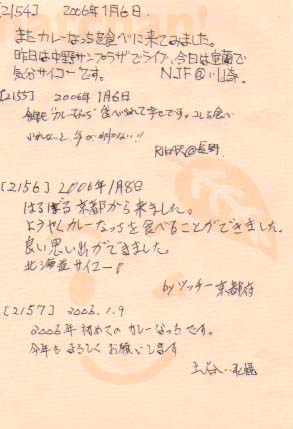 [2154] 2006年1月6日
またカレーなっちを食べに来てみました。
昨日は中野サンプラザでライブ、今日は室蘭で
気分サイコーです。 NJF@川崎
[2155] 2006年1月6日
今年も"カレーなっち"食べれて幸せです。コレを食べ
[2156] 2006年1月8日
はるばる京都から来ました。
ようやくカレーなっちを食べることができました。
良い思い出ができました。
北海道サイコー!
byツッチー京都府
[2157] 2006.1.9
2006年初めてのカレーなっちです。
今年もよろしくお願いします